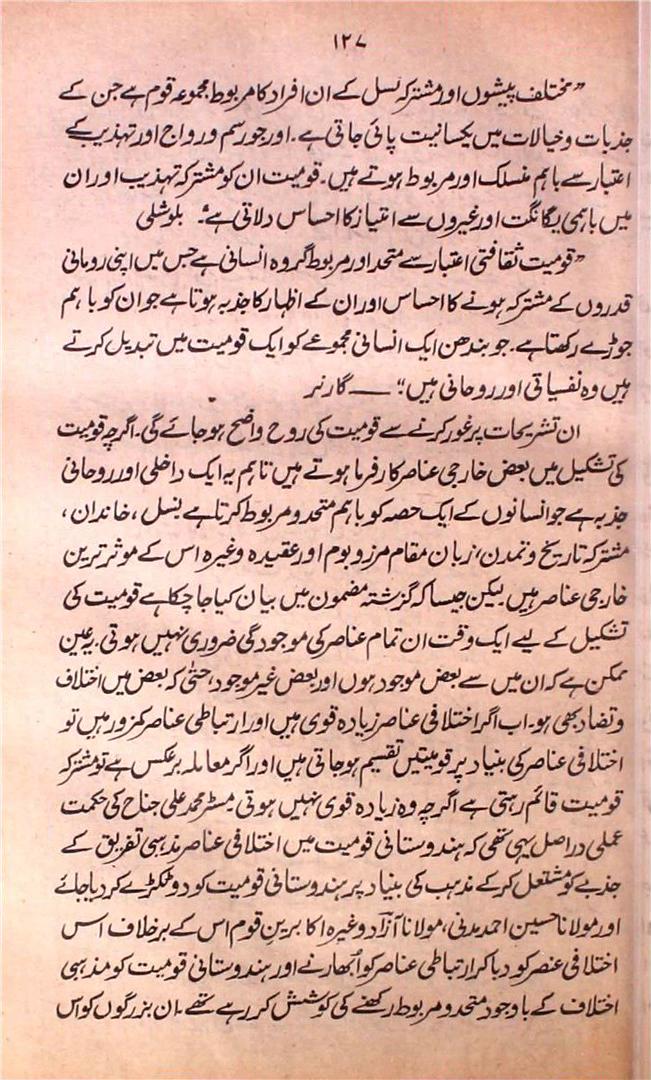 ۱۲۷
”مختلف پیشوں اور مشترکہ نسل کے ان افراد کا مربوط مجموعہ قوم ہے جن کے
جذبات و خیالات میں یکسانیت پائی جاتی ہے۔ اور جو رسم و رواج اور تہذیب کے
اعتبار سے باہم منسلک اور مربوط ہوتے ہیں۔ قومیت ان کو مشترکہ تہذیب اور ان
میں باہمی یگانگت اور غیروں سے امتیاز کا احساس دلاتی ہے“۔ بلوشلی
”قومیت ثقافتی اعتبار سے متحد اور مربوط گروہ انسانی ہے جس میں اپنی رومانی
قدروں کے مشترکہ ہونے کا احساس اور ان کے اظہار کا جذبہ ہوتا ہے جو ان کو باہم
جوڑے رکھتا ہے۔ جو بندھن ایک انسانی مجموعے کو ایک قومیت میں تبدیل کرتے
ہیں وہ نفسیاتی اور روحانی ہیں“ — گارنر
ان تشریحات پر غور کرنے سے قومیت کی روح واضح ہو جائے گی۔ اگرچہ قومیت
کی تشکیل میں بعض خارجی عناصر کارفرما ہوتے ہیں تاہم یہ ایک داخلی اور روحانی
جذبہ ہے جو انسانوں کے ایک حصہ کو باہم متحد و مربوط کرتا ہے نسل، خاندان،
مشترکہ تاریخ و تمدن، زبان مقام مرز و بوم اور عقیدہ وغیرہ اس کے موثر ترین
خارجی عناصر ہیں۔ لیکن جیسا کہ گزشتہ مضمون میں بیان کیا جا چکا ہے قومیت کی
تشکیل کے لیے ایک وقت ان تمام عناصر کی موجودگی ضروری نہیں ہوتی۔ یہ عین
ممکن ہے کہ ان میں سے بعض موجود ہوں اور بعض غیر موجود، حتیٰ کہ بعض میں اختلاف
و تضاد بھی ہو۔ اب اگر اختلافی عناصر زیادہ قوی ہیں اور ارتباطی عناصر کمزور ہیں تو
اختلافی عناصر کی بنیاد پر قومیتیں تقسیم ہو جاتی ہیں اور اگر معاملہ برعکس ہے تو مشترکہ
قومیت قائم رہتی ہے اگرچہ وہ زیادہ قوی نہیں ہوتی۔ مسٹر محمد علی جناح کی حکمت
عملی دراصل یہی تھی کہ ہندوستانی قومیت میں اختلافی عناصر مذہبی تفریق کے
جذبے کو مشتعل کر کے مذہب کی بنیاد پر ہندوستانی قومیت کو دو ٹکڑے کر دیا جائے
اور مولانا حسین احمد مدنی، مولانا آزاد وغیرہ اکابرین قوم اس کے برخلاف اس
اختلافی عنصر کو دبا کر ارتباطی عناصر کو اُبھارنے اور ہندوستانی قومیت کو مذہبی
اختلاف کے باوجود متحد و مربوط رکھنے کی کوشش کر رہے تھے۔ ان بزرگوں کو اس